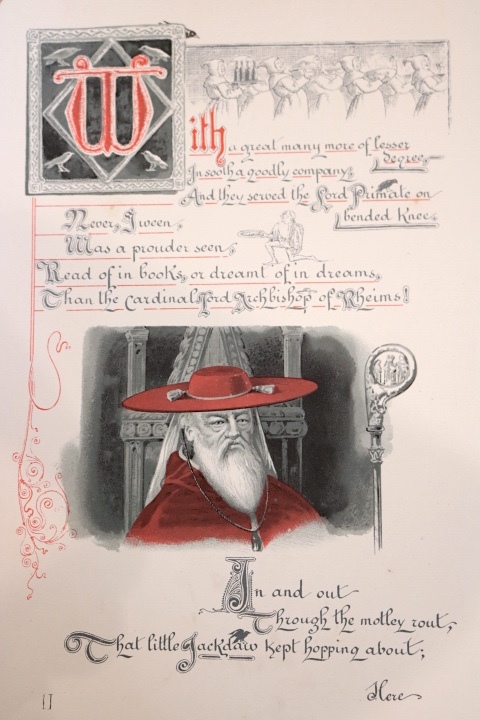 With a great many more of lesser
degree,—
In sooth a goodly company;
And they served the Lord Primate on
bended Knee.
Never, I ween,
Was a prouder seen,
Read of in books, or dreamt of in dreams,
Than the Cardinal Lord Archbishop of Rheims!
In and out
Through the motley rout,
That little Jackdaw kept hopping about;
Here
11